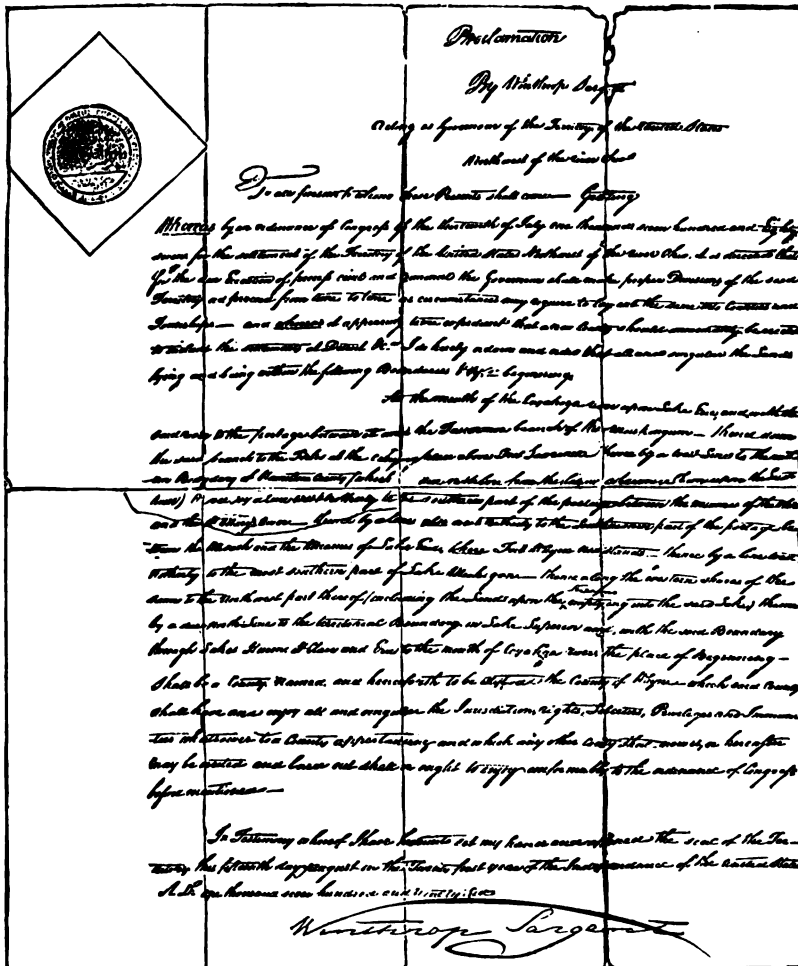 Proclamation
By Winthrop Sargent
Acting as Governour of the Territory of the United States
Northwest of the river Ohio
To all persons to whom these Presents shall come — Greeting
Whereas by an ordinance of Congress of the thirteenth of July one thousand seven hundred and Eighty
seven for the settlement of the Territory of the United States Northwest of the river Ohio, it is directed that
for the due Execution of process civil and criminal the Governour shall make proper Divisions of the said
Territory and proceed from time to time as circumstances may require to lay out the same into Counties and
Townships — and whereas it appearing to me expedient that a new County should immediately be erected
to include the settlements of Detroit &c — I do hereby ordain and order that all and singular the Lands
lying and being within the following Boundaries Viz — beginning
At the mouth of the Cayahoga river upon Lake Erie, and with the
said river to the portage between it and the Tuscarawa branch of the Muskingum — thence down
the said branch to the Forks at the carrying place above Fort Lawrence thence by a west Line to the
Boundary of Hamilton County (which is a
line) by a line west northerly to the southern part of the portage between the
and the St. Marys river — thence by a line also west northerly to the Southwestern part of the portage be-
tween the Wabash and the Miamis of Lake Erie, where Fort Wayne now stands — thence by a line west
northerly to the most southern part of Lake Michigan — thence along the western shores of the
same to the Northwest part thereof (including the Lands upon the Streams emptying into the said Lake) thence
by a due north Line to the territorial Boundary in Lake Superior and with the said Boundary
through Lakes Huron St Clair and Erie to the mouth of Cayahoga river the place of Beginning —
shall be a County Named and henceforth to be called the County of Wayne — which said County
shall have and enjoy all and singular the Jurisdiction, rights, Liberties, Privileges and Immuni-
ties whatsoever to a County appertaining and which any other County that now is or hereafter
may be erected and laid out shall or ought to enjoy conformably to the ordinance of Congress
before mentioned —
In Testimony whereof I have hereunto set my hand and affixed the seal of the Ter-
ritory this fifteenth day of August in the Twenty first year of the Independence of the United States
A.D. one thousand seven hundred and ninety six
Winthrop Sargent